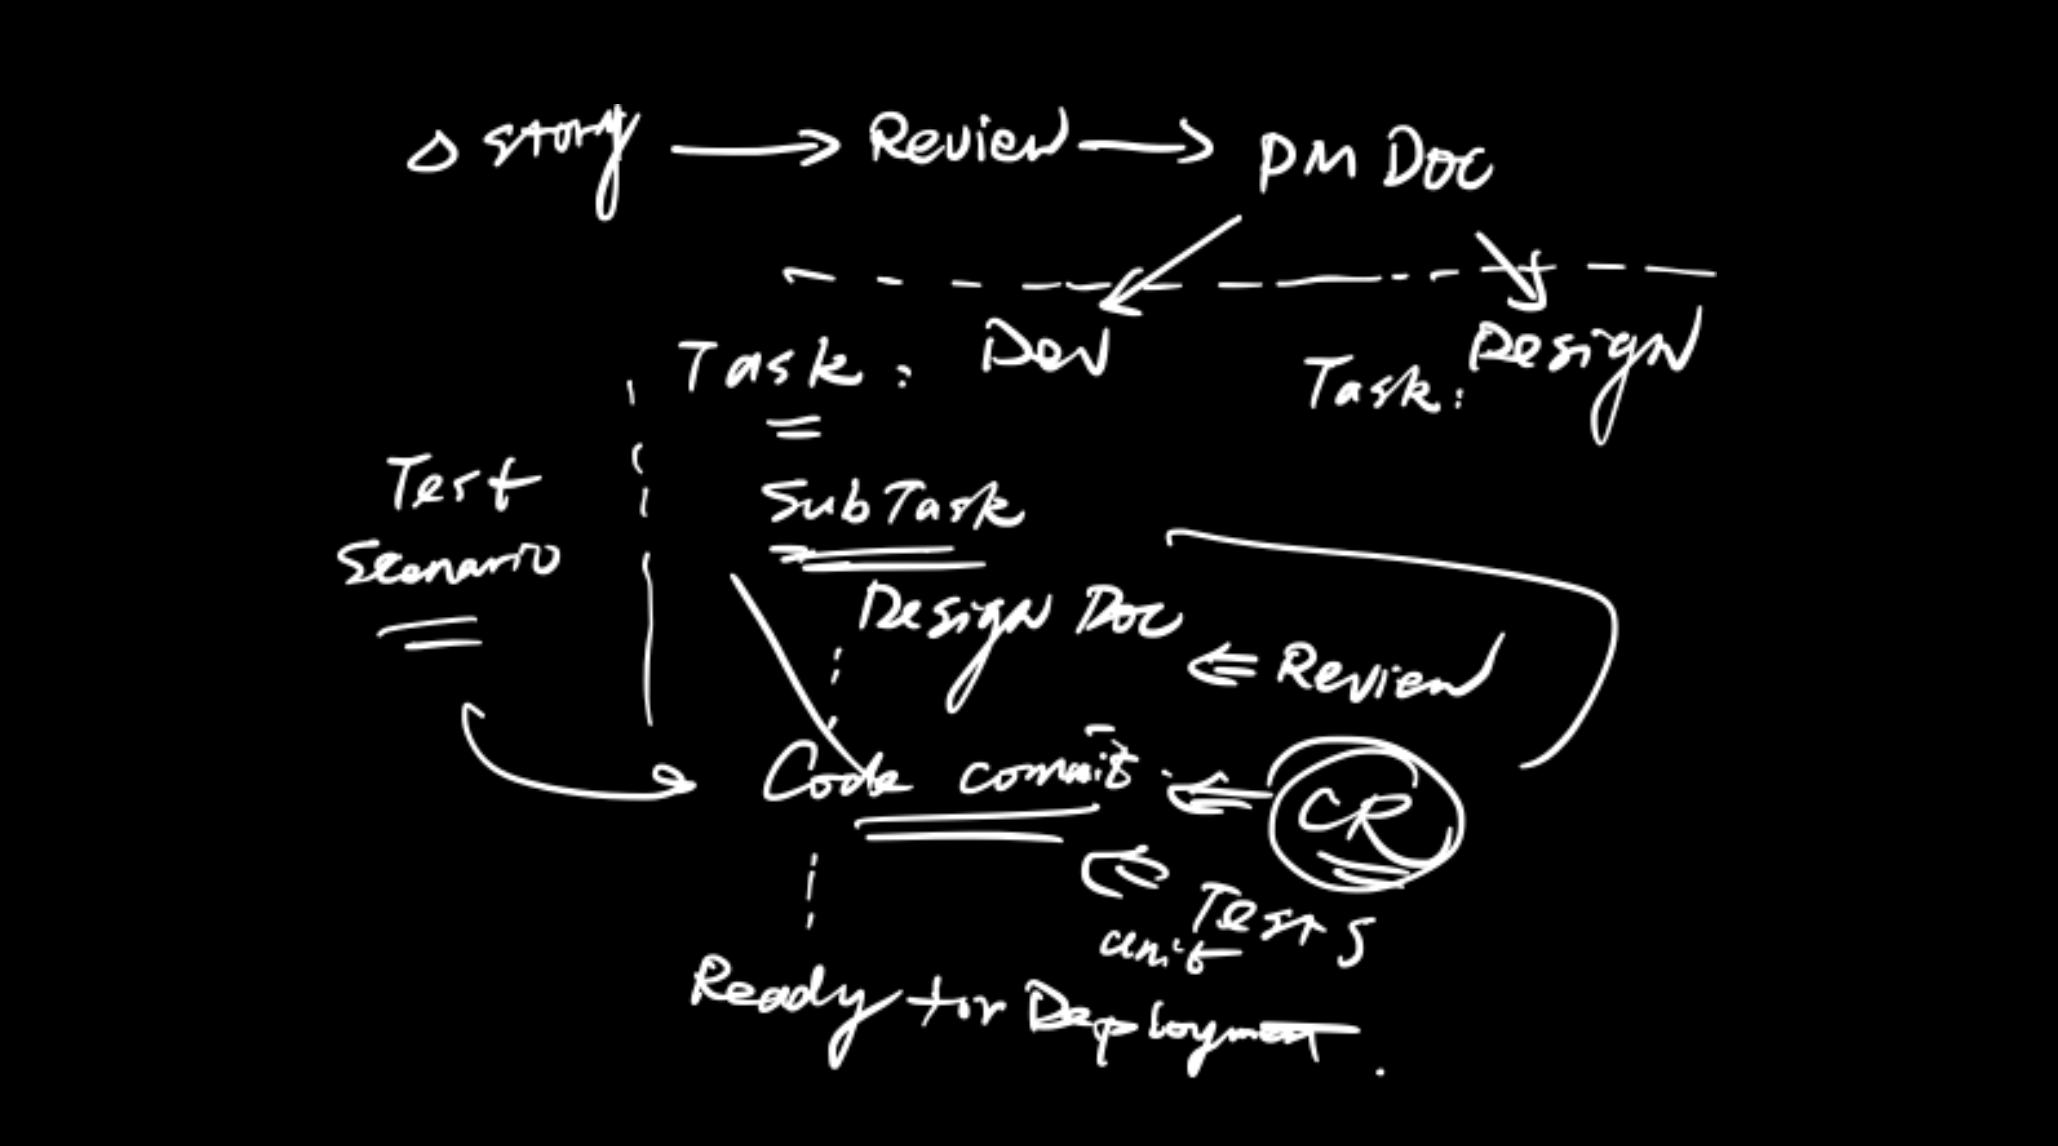 Story → Review → PM Doc
Task: Dev
Task: Design
Test
Scenario
SubTask
Design Doc
⇐ Review
Code commit
⇐ CR
⇐ Tests
unit
Ready for Deployment.